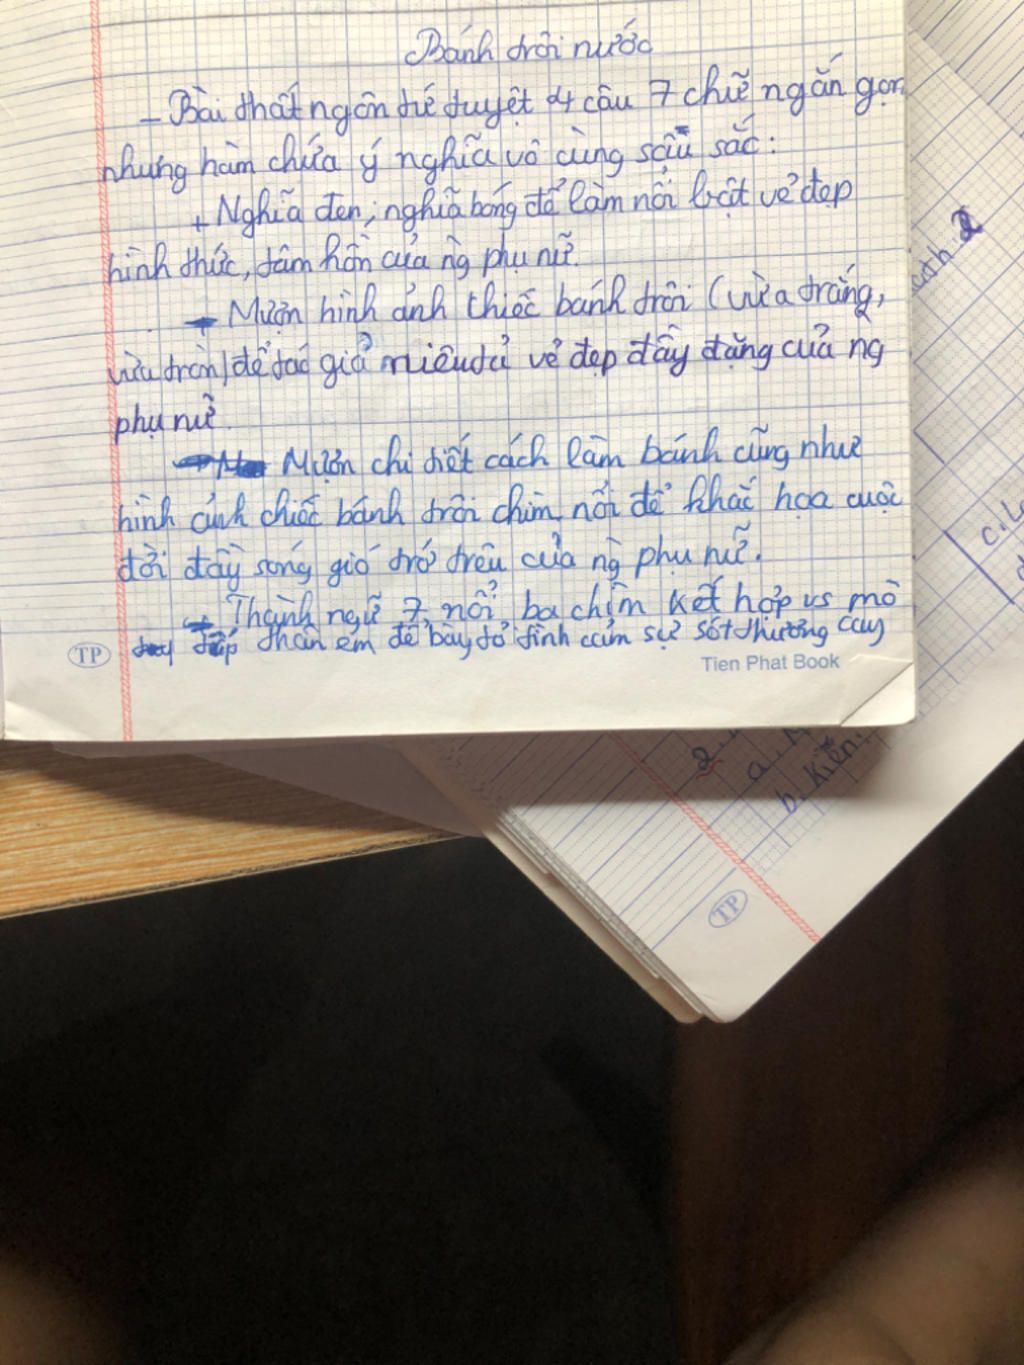 Bánh trôi nước
- Bài thất ngôn tứ tuyệt 4 câu 7 chữ ngắn gọn
nhưng hàm chứa ý nghĩa vô cùng sâu sắc:
+ Nghĩa đen, nghĩa bóng để làm nổi bật vẻ đẹp
hình thức, tâm hồn của ng phụ nữ.
→ Mượn hình ảnh chiếc bánh trôi (vừa trắng,
vừa tròn) để tác giả miêu tả vẻ đẹp đầy đặng của ng
phụ nữ.
→ Mượn chi tiết cách làm bánh cũng như
hình ảnh chiếc bánh trôi chìm, nổi để khắc họa cuộc
đời đầy sóng gió trớ trêu của ng phụ nữ.
→ Thành ngữ 7 nổi ba chìm kết hợp vs mô
típ thân em để bày tỏ tình cảm sự sót thương cay
TP
Tien Phat Book
2
c.
2.
a.
b. Kiến
TP